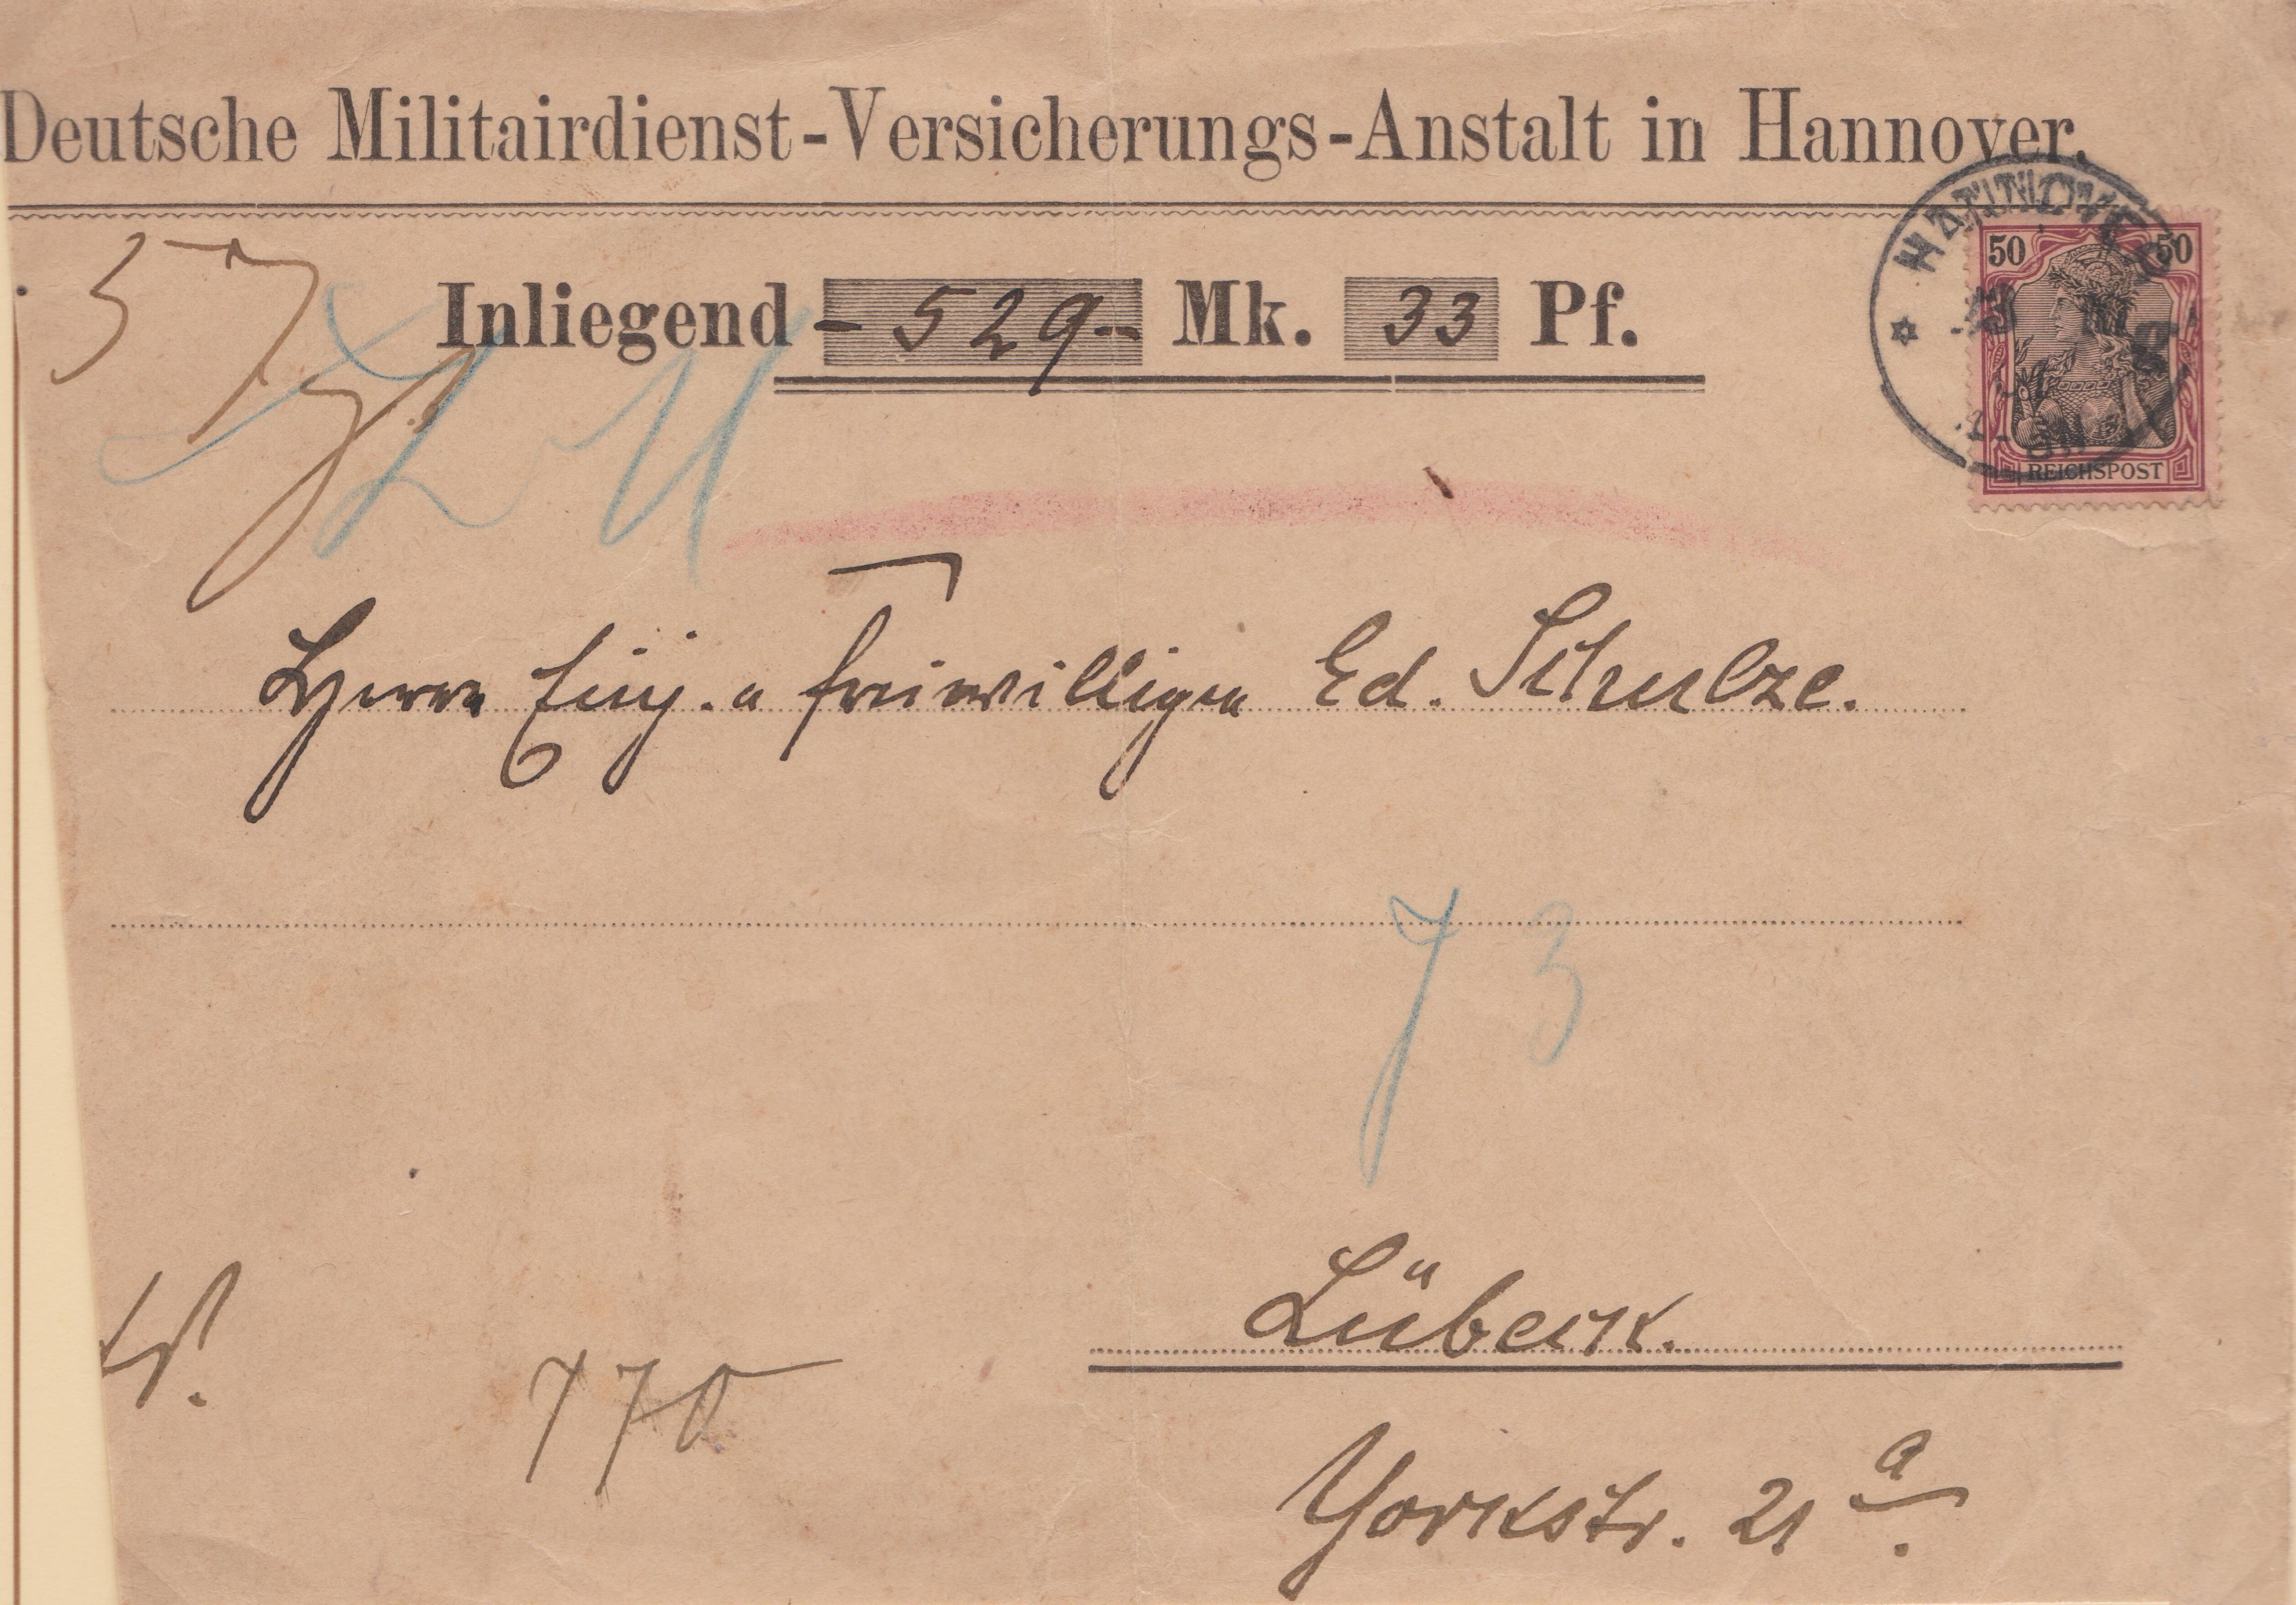 Deutsche Militairdienst-Versicherungs-Anstalt in Hannover.
HANNOVER
50 50
REICHSPOST
Inliegend - 529 - Mk. 33 Pf.
Herrn Einj. Freiwilligen Ed. Schulze.
73
Lübeck.
770
Yorkstr. 21 a.